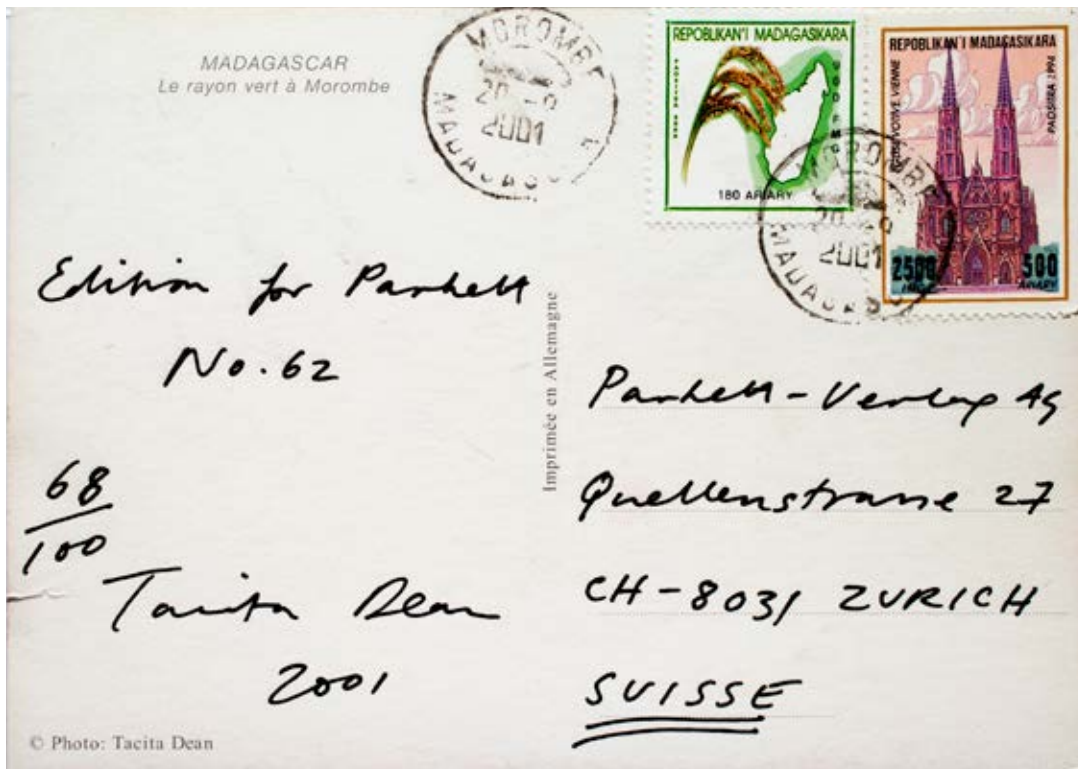 MADAGASCAR
Le rayon vert à Morombe
MOROMBE
20 -8
2001
MADAGASC
REPOBLIKAN'I MADAGASIKARA
900 FMG
180 ARIARY
REPOBLIKAN'I MADAGASIKARA
VOTIVE VIENNE
PAOSITRA 1994
2500
500
ARIARY
MOROMBE
2001
Edition for Parkett
No. 62
68/100
Tacita Dean
2001
Imprimée en Allemagne
Parkett-Verlag AG
Quellenstrasse 27
CH-8031 ZURICH
SUISSE
© Photo: Tacita Dean